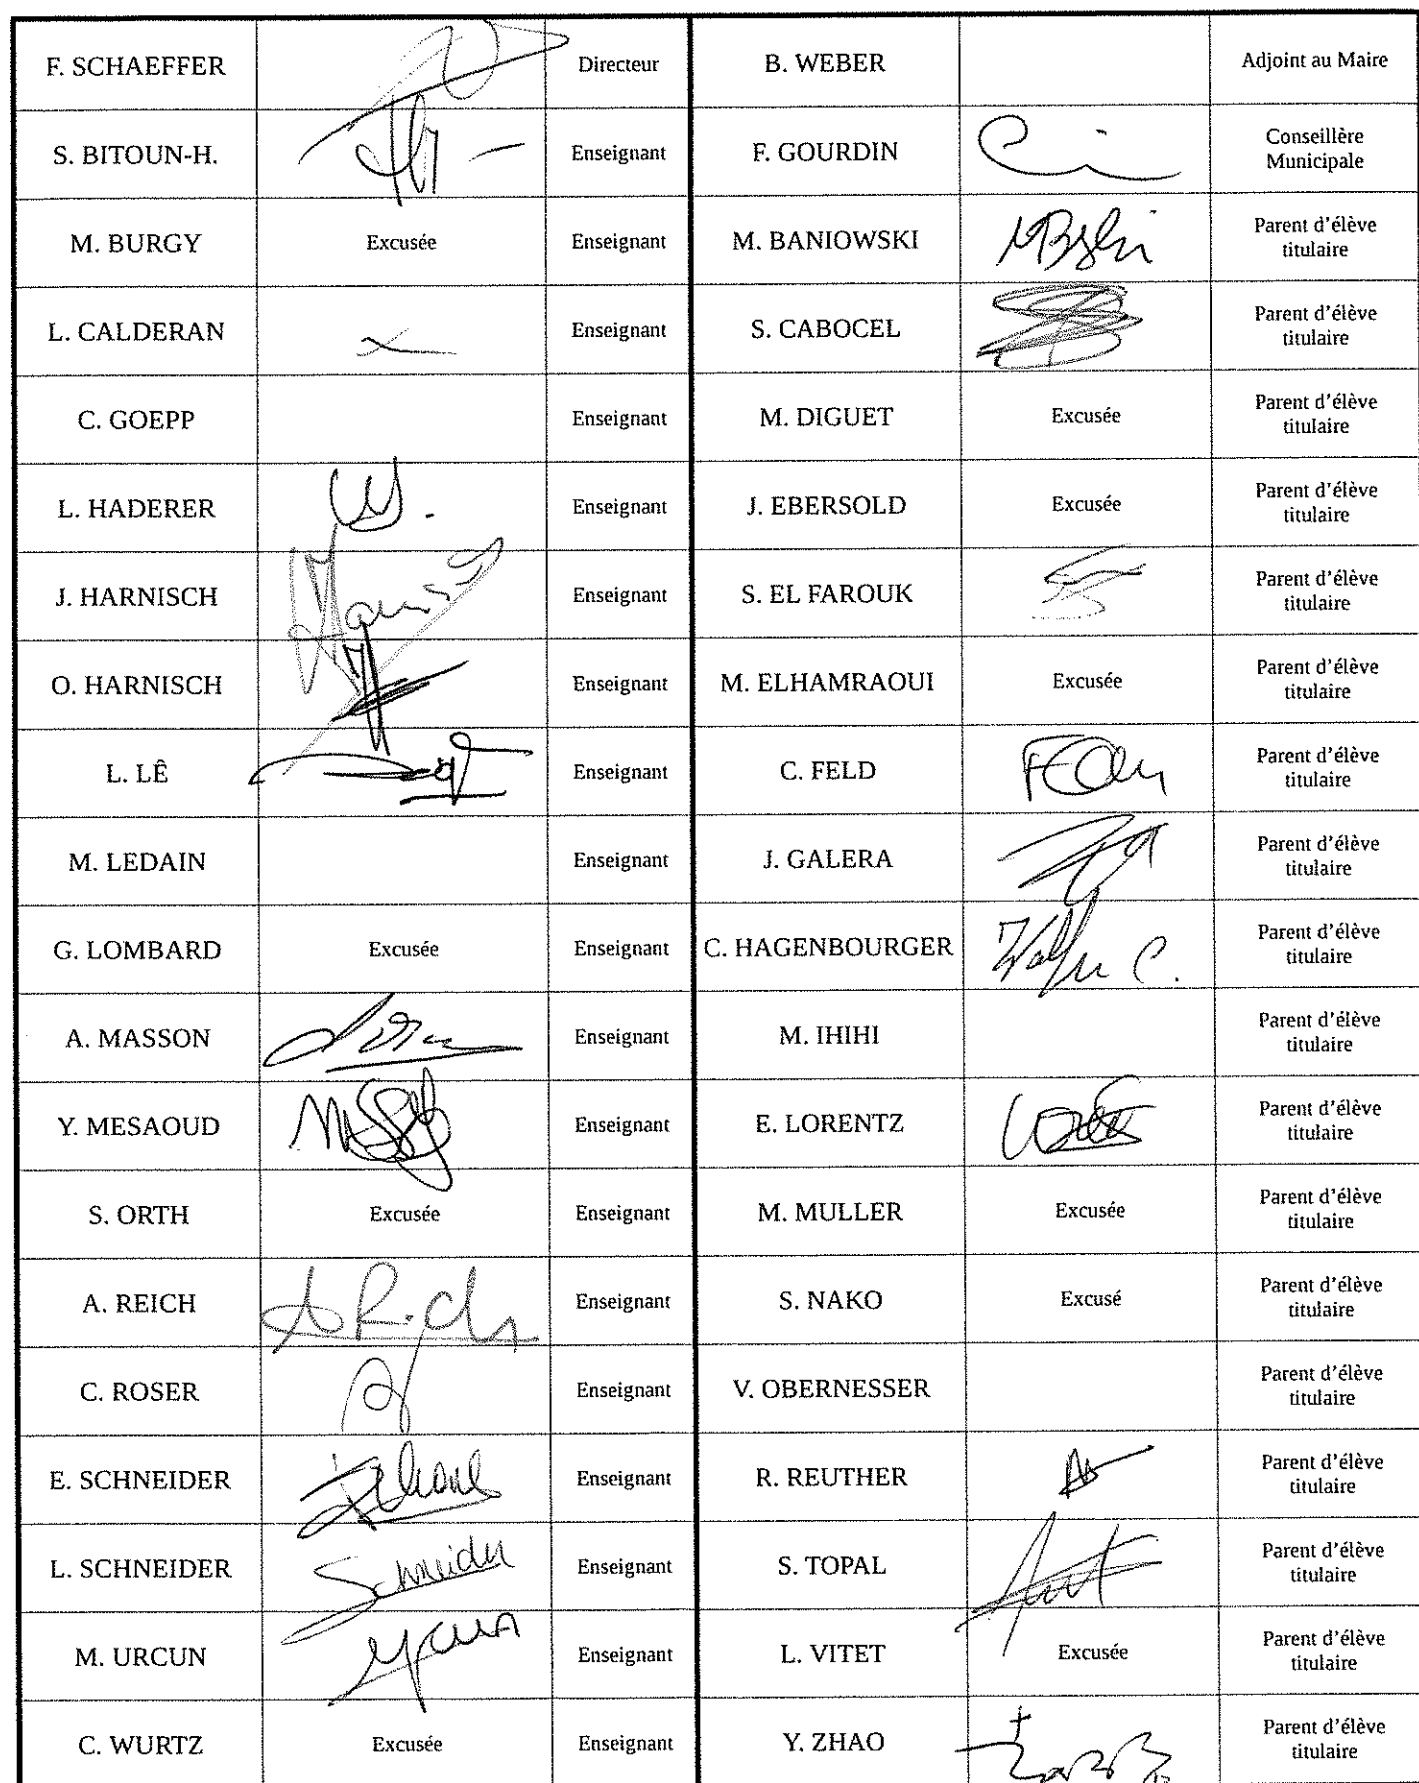 F. SCHAEFFER Directeur B. WEBER Adjoint au Maire
S. BITOUN-H. Enseignant F. GOURDIN Conseillère
Municipale
M. BURGY Excusée Enseignant M. BANIOWSKI Parent d'élève
titulaire
L. CALDERAN Enseignant S. CABOCEL Parent d'élève
titulaire
C. GOEPP Enseignant M. DIGUET Excusée Parent d'élève
titulaire
L. HADERER Enseignant J. EBERSOLD Excusée Parent d'élève
titulaire
J. HARNISCH Enseignant S. EL FAROUK Parent d'élève
titulaire
O. HARNISCH Enseignant M. ELHAMRAOUI Excusée Parent d'élève
titulaire
L. LÊ Enseignant C. FELD Parent d'élève
titulaire
M. LEDAIN Enseignant J. GALERA Parent d'élève
titulaire
G. LOMBARD Excusée Enseignant C. HAGENBOURGER Parent d'élève
titulaire
A. MASSON Enseignant M. IHIHI Parent d'élève
titulaire
Y. MESAOUD Enseignant E. LORENTZ Parent d'élève
titulaire
S. ORTH Excusée Enseignant M. MULLER Excusée Parent d'élève
titulaire
A. REICH Enseignant S. NAKO Excusé Parent d'élève
titulaire
C. ROSER Enseignant V. OBERNESSER Parent d'élève
titulaire
E. SCHNEIDER Enseignant R. REUTHER Parent d'élève
titulaire
L. SCHNEIDER Schneider Enseignant S. TOPAL Parent d'élève
titulaire
M. URCUN Enseignant L. VITET Excusée Parent d'élève
titulaire
C. WURTZ Excusée Enseignant Y. ZHAO Parent d'élève
titulaire